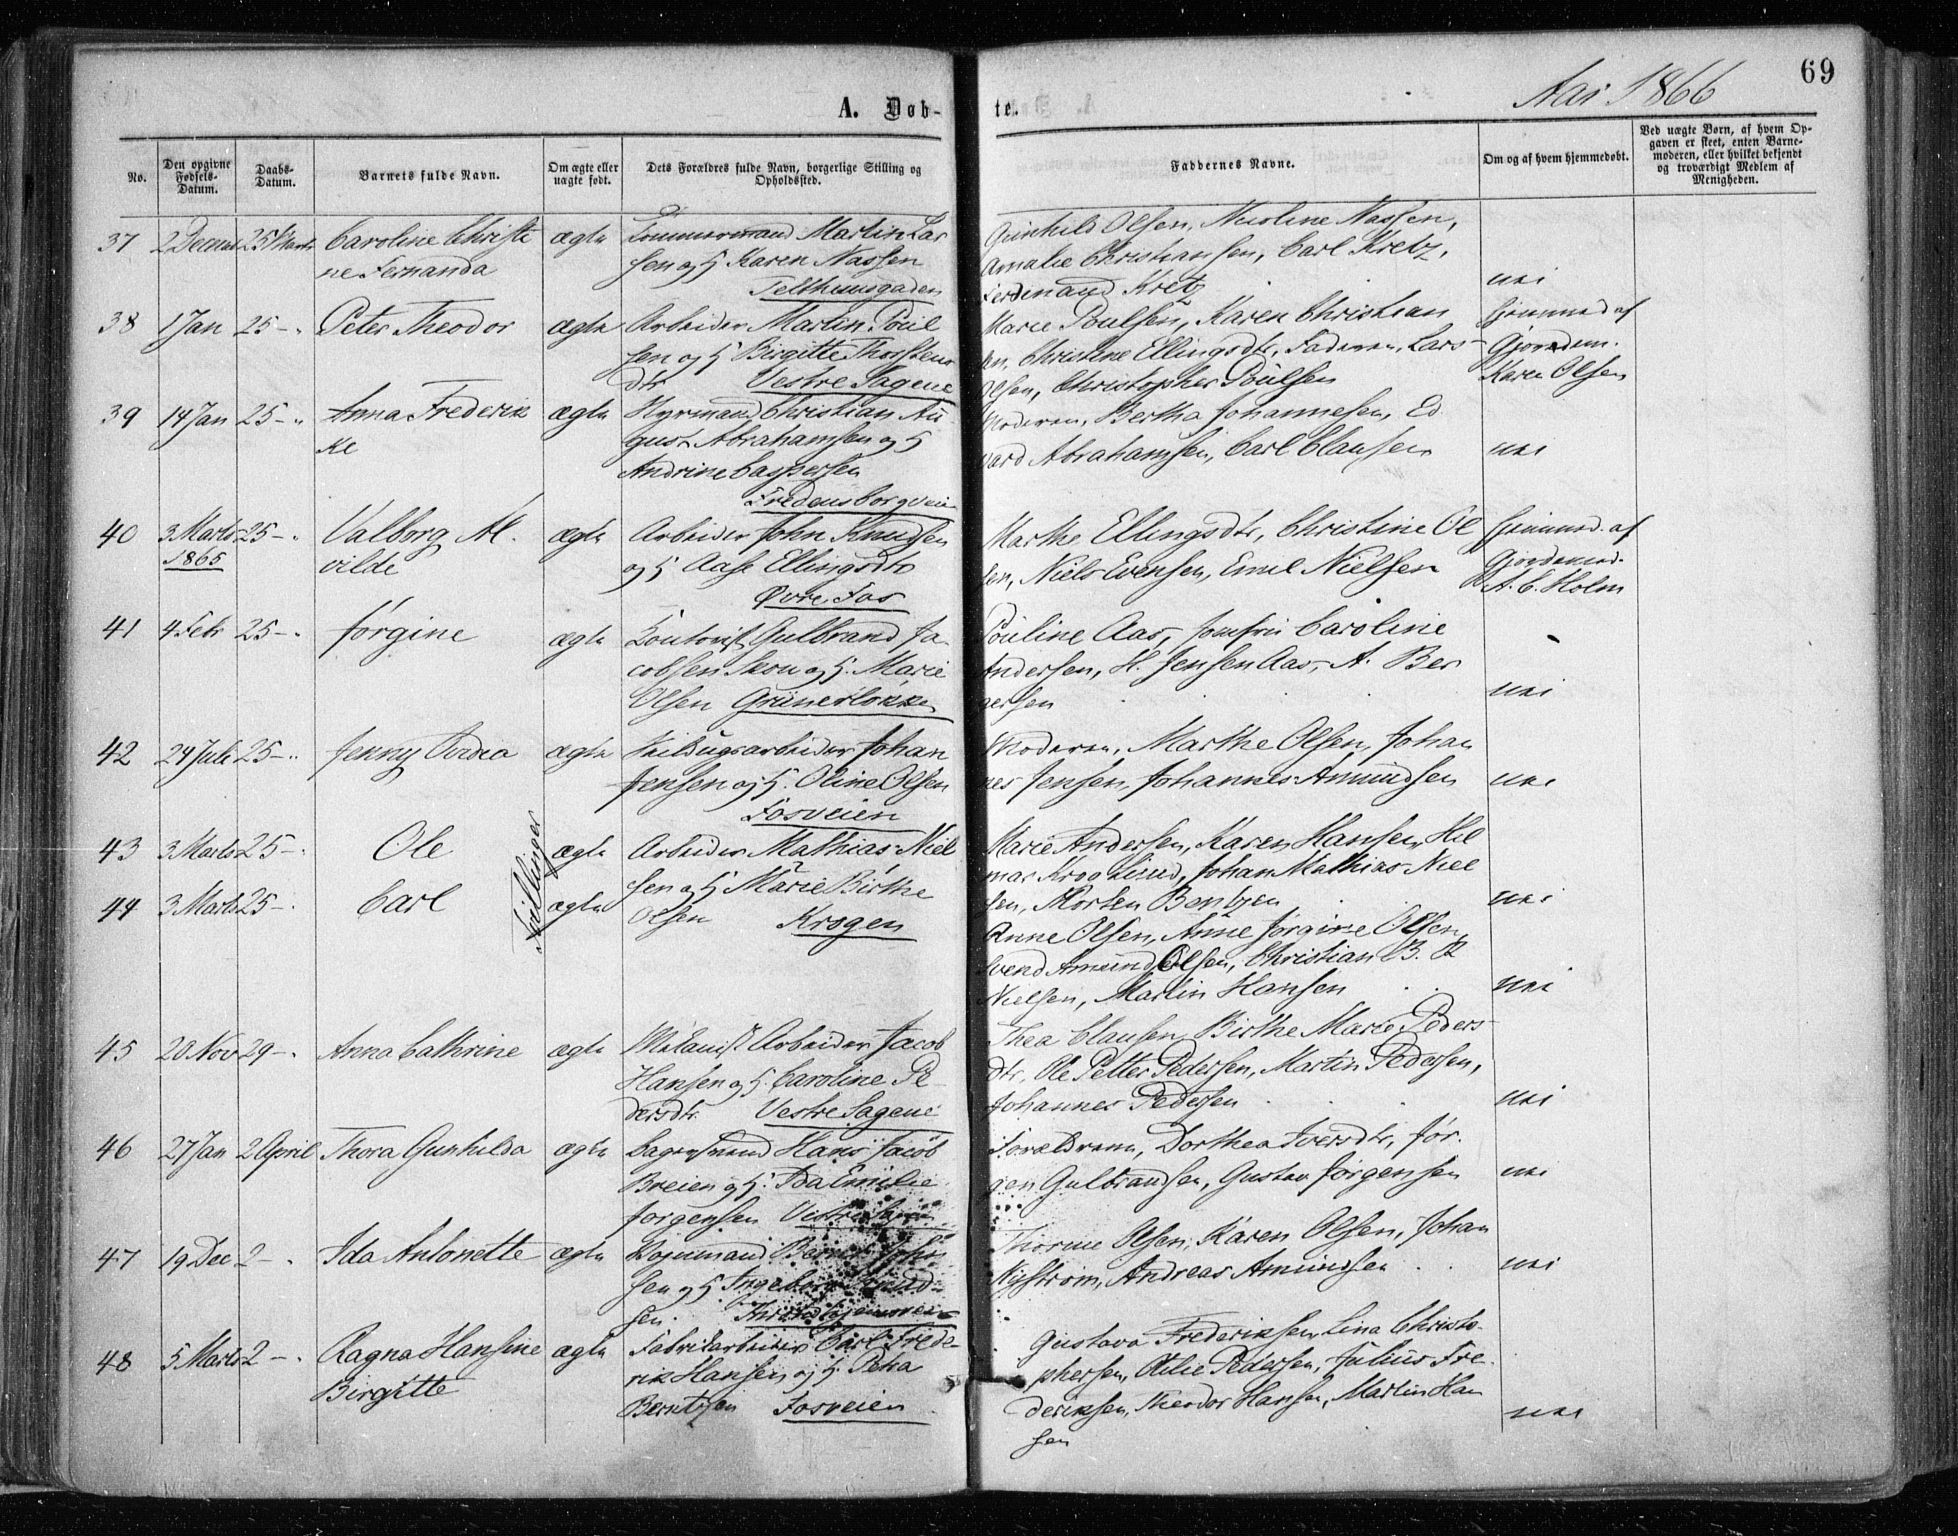 69
Aar 1866
A. Døb-
te.
No.
Den opgivne Fødsels-Datum.
Daabs-Datum.
Barnets fulde Navn.
Om ægte eller uægte født.
Dets Forældres fulde Navn, borgerlige Stilling og Opholdssted.
Faddernes Navne.
Om og af hvem hjemmedøbt.
Ved uægte Børn, af hvem Op-
gaven er skeet, enten Barne-
moderen, eller hvilket bekjendt
og troværdigt Medlem af
Menigheden.
37 2 Decemb 25 Marts Caroline Christi ægte Tømmermand Martin Lar
ne Fernanda sen og H Karen Nassen
Telthuusgaden
Gunhild Olsen, Nicoline Nassen,
Amalie Christiansen, Carl Kretz,
Ferdinand Kretz nei
38 1 Jan 25 - Peter Theodor ægte Arbeider Martin Poul
sen og H Birgitte Thorstens
dtr Vestre Sagene
Marie Poulsen, Karen Christian Hjemmed af
sen, Christine Ellingsdtr, Faderen, Lars Gjordem.
Olsen, Christopher Poulsen Karen Olsen
39 14 Jan 25 - Anna Frederik ægte Hyrmand Christian Au
ke gust Abrahamsen og H
Andrine Caspersen
Fredensborgveien
Moderen, Bertha Johannesen, Ed
vard Abrahamsen, Carl Clausen nei
40 3 Marts 25 - Valborg Al ægte Arbeider John Knudsen
1865 vilde og H Aase Ellingsdtr
Øvre Fos
Marthe Ellingsdtr, Christine Ol Hjemmed. af
sen, Niels Evensen, Emil Nielsen Gjordemod.
A. C. Holm
41 4 Febr 25 - Jørgine ægte Kontorist Gulbrand Ja
cobsen Skou og H. Marie
Olsen Grünerløkken
Pouline Aas, Jomfru Caroline
Andersen, H. Jensen Aas, A. Ber
gersen nei
42 24 Juli 25 - Jenny Ovidia ægte Seildugsarbeider Johan
Jensen og H. Oline Olsen
Fosveien
Moderen, Marthe Olsen, Johan
nes Jensen, Johannes Amundsen nei
Tvillinger
43 3 Marts 25 - Ole ægte Arbeider Mathias Niel
44 3 Marts 25 - Carl ægte sen og H Marie Birthe
Olsen Krogen
Marie Andersen, Karen Hansen, Hil
mar Kroglund, Johan Mathias Niel
sen, Morten Bentzen nei
Anne Olsen, Anne Jørgine Olsen,
Svend Amund Olsen, Christian B. R
Nielsen, Martin Hansen nei
45 20 Nov 29 - Anna Cathrine ægte Arbeider Jacob
Hansen og H. Caroline Pe
dersdtr. Vestre Sagene
Thea Clausen, Birthe Marie Peders
dtr. Ole Petter Pedersen, Martin Pedersen,
Johannes Pedersen nei
46 27 Jan 2 April Thora Gunhilda ægte Hans Jacob
Breien og H. Ida Emilie
Jørgensen Vestre Sagene
Forældrene, Dorthea Iversdtr, Jør
gen Gulbrandsen, Gustav Jørgensen nei
47 19 Dec 2 - Ida Antonette ægte
sen og H Ingeborg
sen.
Thorine Olsen, Karen Olsen, Johan
Nystrøm, Andreas Amundsen nei
48 5 Marts 2 - Ragna Hansine ægte Fabrikarbeider Carl Frede
Birgitte rik Hansen og H. Petra
Berntsen Fosveien
Gustava Frederiksen, Lina Christo
phersen, Otilie Pedersen, Julius Fre
deriksen, Theodor Hansen, Martin Han
sen nei